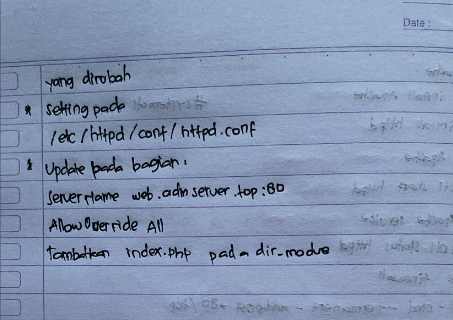 Date :
yang dirubah
* setting pada
/etc/httpd/conf/httpd.conf
* Update pada bagian :
ServerName web.adm server.top:80
AllowOverride All
Tambahkan index.php pada dir_module